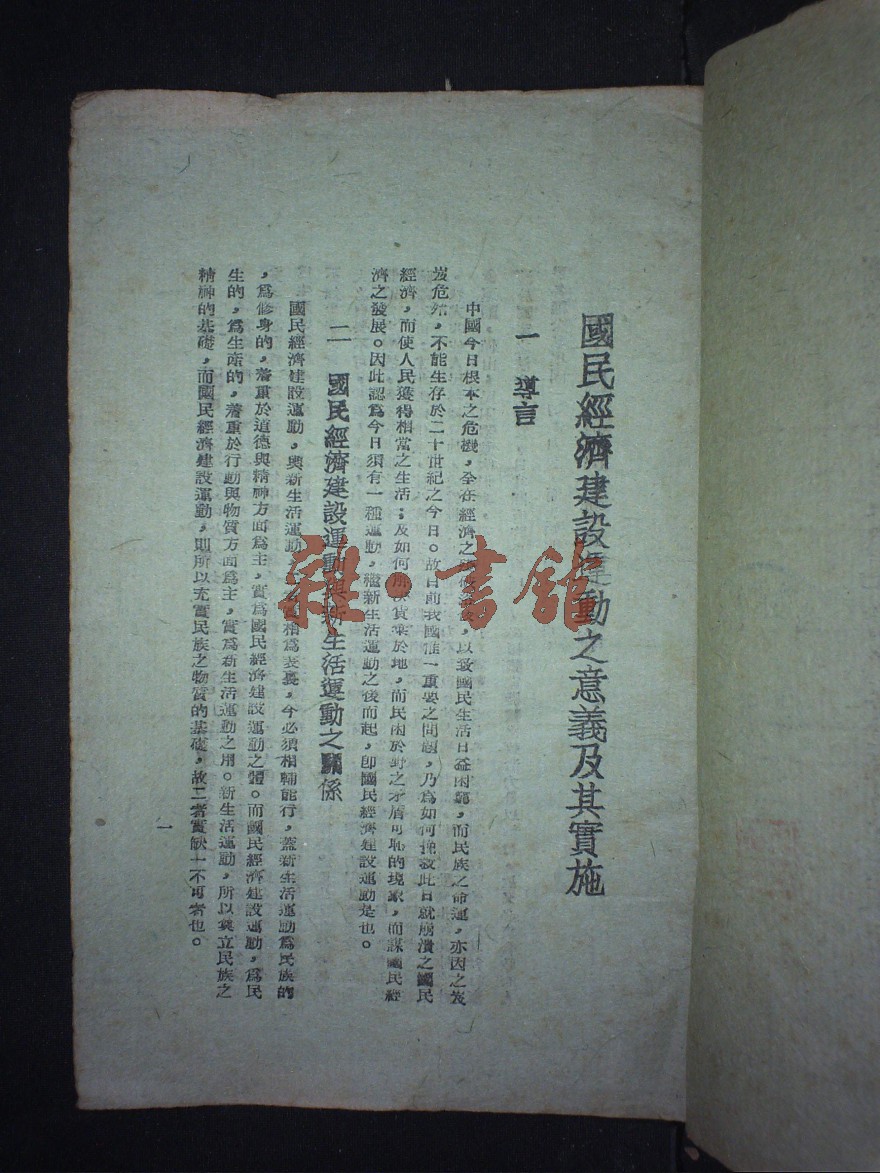 國民經濟建設運動之意義及其實施
一 導言
中國今日根本之危機，全在經濟之，以致國民生活日益困窮，而民族之命運，亦因之岌
岌危殆，不能生存於二十世紀之今日。故目前我國唯一重要之問題，乃為如何挽救此日就崩潰之國民
經濟，而使人民獲得相當之生活；及如何解決貨棄於地，而民困於野之矛盾可恥的現象，而謀國民經
濟之發展。因此認為今日須有一種運動，繼新生活運動之後而起，即國民經濟建設運動是也。
二 國民經濟建設運動與新生活運動之關係
國民經濟建設運動，與新生活運動，實相為表裏，今必須相輔而行，蓋新生活運動為民族的
，為修身的，著重於道德與精神方面為主，實為國民經濟建設運動之體。而國民經濟建設運動，為民
生的，為生產的，著重於行動與物質方面為主，實為新生活運動之用。新生活運動，所以奠立民族之
精神的基礎，而國民經濟建設運動，則所以充實民族之物質的基礎，故二者實缺一不可者也。
一
雜·書館